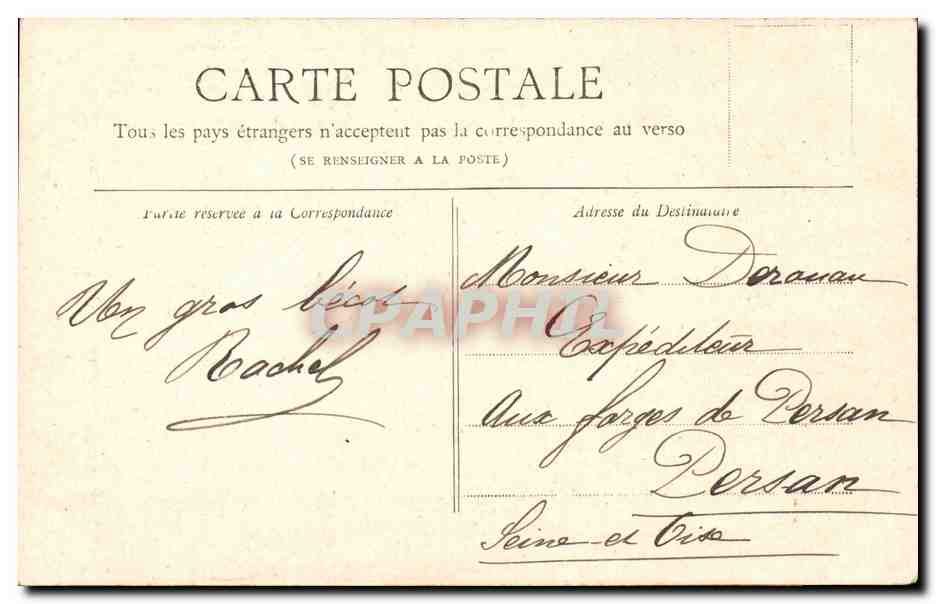 CARTE POSTALE
Tous les pays étrangers n'acceptent pas la correspondance au verso
(SE RENSEIGNER A LA POSTE)
Partie réservée à la Correspondance
Un gros bécot
Rachel
Adresse du Destinataire
Monsieur Derouau
Expéditeur
Aux forges de Persan
Persan
Seine et Oise
CPAPHIL